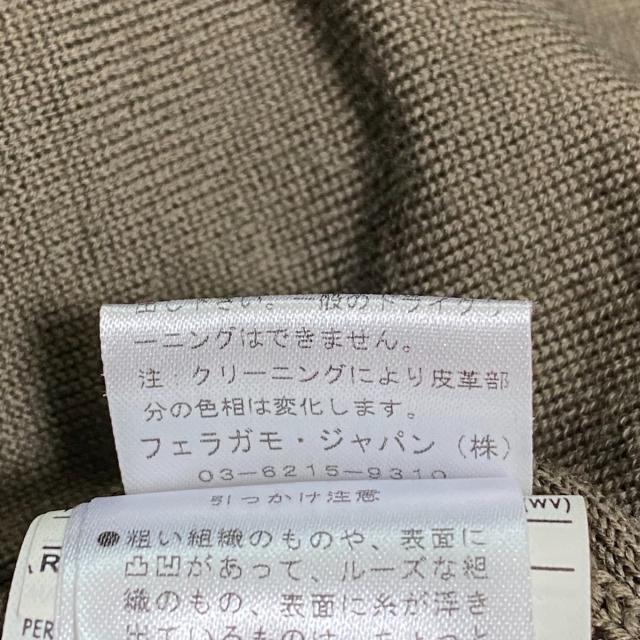 出し下さい。一般のドライクリ
ーニングはできません。
注：クリーニングにより皮革部
分の色相は変化します。
フェラガモ・ジャパン（株）
03-6215-9310
引っかけ注意
●粗い組織のものや、表面に
凸凹があって、ルーズな組
織のもの、表面に糸が浮き
出ているものは、ちょっと
(WV)
R
PER